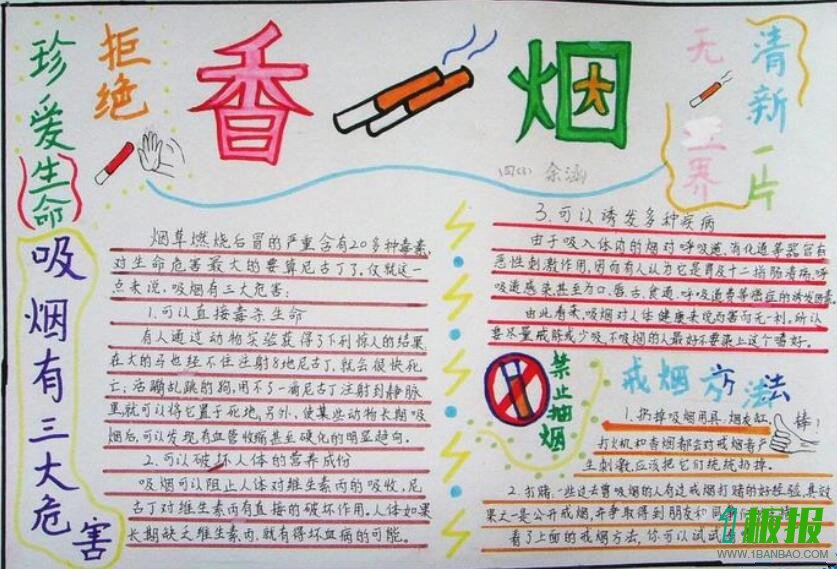 珍爱生命
拒绝
香烟
无
世界
清新一片
四(1) 余涵
吸烟有三大危害
烟草燃烧后冒的严重含有20多种毒素,
对生命危害最大的要算尼古丁了,仅就这一
点来说,吸烟有三大危害:
1.可以直接毒杀生命
有人通过动物实验获得了下列惊人的结果,
在大的马也经不住注射8地尼古丁,就会很快死
亡;活蹦乱跳的狗,用不了一滴尼古丁注射到静脉
里,就可以将它置于死地,另外,使某些动物长期吸
烟后,可以发现有血管收缩甚至硬化的明显趋向。
2.可以破坏人体的营养成份
吸烟可以阻止人体对维生素丙的吸收,尼
古丁对维生素丙有直接的破坏作用。人体如果
长期缺乏维生素丙,就有得坏血病的可能。
3.可以诱发多种疾病
由于吸入体内的烟对呼吸道、消化道等器官有
恶性刺激作用,因而有人认为它是胃及十二指肠溃疡、呼
吸道感染甚至为口、唇、舌、食道、呼吸道费等癌症的诱发因素。
由此看来,吸烟对人体健康来说有害而无一利,所以
要尽量戒除或少吸,不吸烟的人最好不要染上这个嗜好。
禁止抽烟
戒烟方法
棒!
1.扔掉吸烟用具:烟灰缸、
打火机和香烟都会对戒烟者产
生刺激,应该把它们统统扔掉。
2.打赌:一些过去曾吸烟的人有过戒烟打赌的好经验,其效
果之一是公开戒烟,并争取得到朋友和同
看了上面的戒烟方法,你可以试试
1板报
WWW.1BANBAO.COM